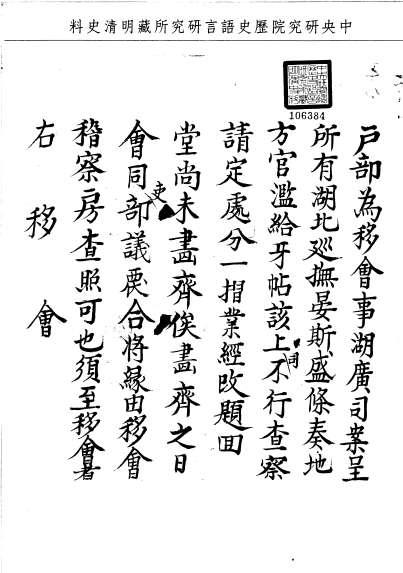 中央研究院歷史語言研究所藏明清史料
106384
戶部為移會事湖廣司案呈
所有湖北廵撫晏斯盛條奏地
方官濫給牙帖該上不行查察
同
請定處分一摺業經改題回
堂尚未畫齊俟畫齊之日
會同部議覆合將緣由移會
吏
稽察房查照可也須至移會者
右移會